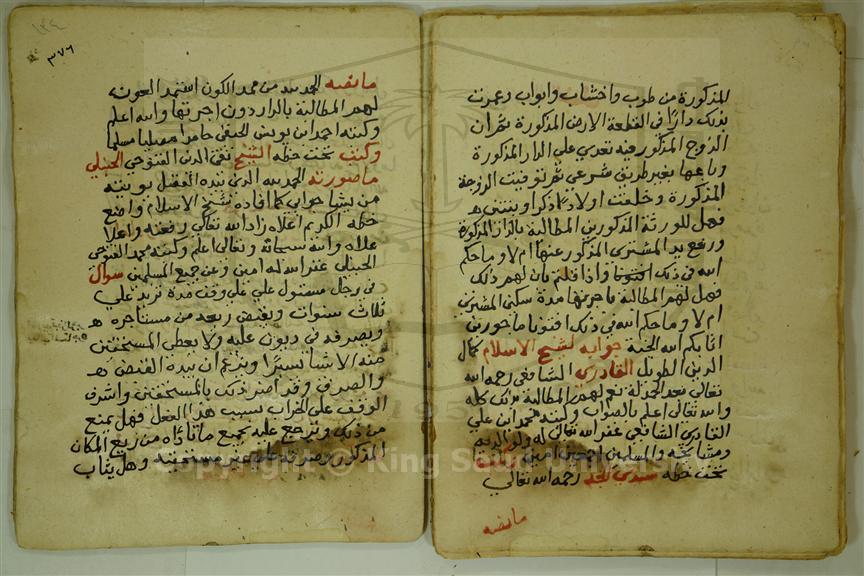 المذكورة من طوب واخشاب وابواب وعمرت
بذلك دارا في القطعة الارض المذكورة ثم ان
الزوج المذكور فيه تعدي علي الدار المذكورة
وباعها بغير طريق شرعي ثم توفيت الزوجة
المذكورة وخلفت اولادا ذكرا وبنتى
فهل للورثة المذكورين المطالبة بالدار المذكورة
ورفع يد المشتري المذكور عنها ام لا وما حكم
الله في ذلك افتونا واذا قلتم بان لهم ذلك
فهل لهم المطالبة باجرتها مدة سكني المشتري
ام لا وما حكم الله في ذلك افتونا ماجورين
اثابكم الله الجنة جوابه لشيخ الاسلام كمال
الدين الطويل القادري الشافعي رحمه الله
تعالي بعد الحمدلة نعم لهم المطالبة بذلك كله
والله تعالي اعلم بالصواب وكتبه محمد ابن علي
القادري الشافعي غفر الله تعالي له ولوالديه
ومشايخه والمسلمين اجمعين امين
تحت خطه سيدي رحمه الله تعالي
ما نصه
١٣٤
٣٧٦
ما نصه الحمد لله من ممد الكون استمد العون
لهم المطالبة بالدار دون اجرتها والله اعلم
وكتبه احمد ابن يونس الحنفي حامدا مصليا مسلما
وكتب تحت خطه الشيخ تقي الدين الفتوحي الحنبلي
ما صورته الحمد لله الذي بيده الفضل يوتيه
من يشا جوابي كما افاده شيخ الاسلام واضع
خطه الكريم اعلاه زاد الله تعالي رفعته واعلا
علاه والله سبحانه وتعالي اعلم وكتبه محمد الفتوحي
الحنبلي غفر الله له امين وعن جميع المسلمين سوال
في رجل مستول علي علي وقف مدة تزيد علي
ثلاث سنوات ويقبض ريعه من مستاجره
ويصرفه في ديون عليه ولا يعطي المستحقين
منه الا شيا يسيرا ويزعم ان بيده القبض
والصرف وقد اضر ذلك بالمستحقين واشرف
الوقف علي الخراب بسبب هذا الفعل فهل يمنع
من ذلك ويرجع عليه بجميع ما تاداه من ريع المكان
المذكور وصرفه علي غير مستحقيه وهل يثاب
Copyright © King Saud University
1957